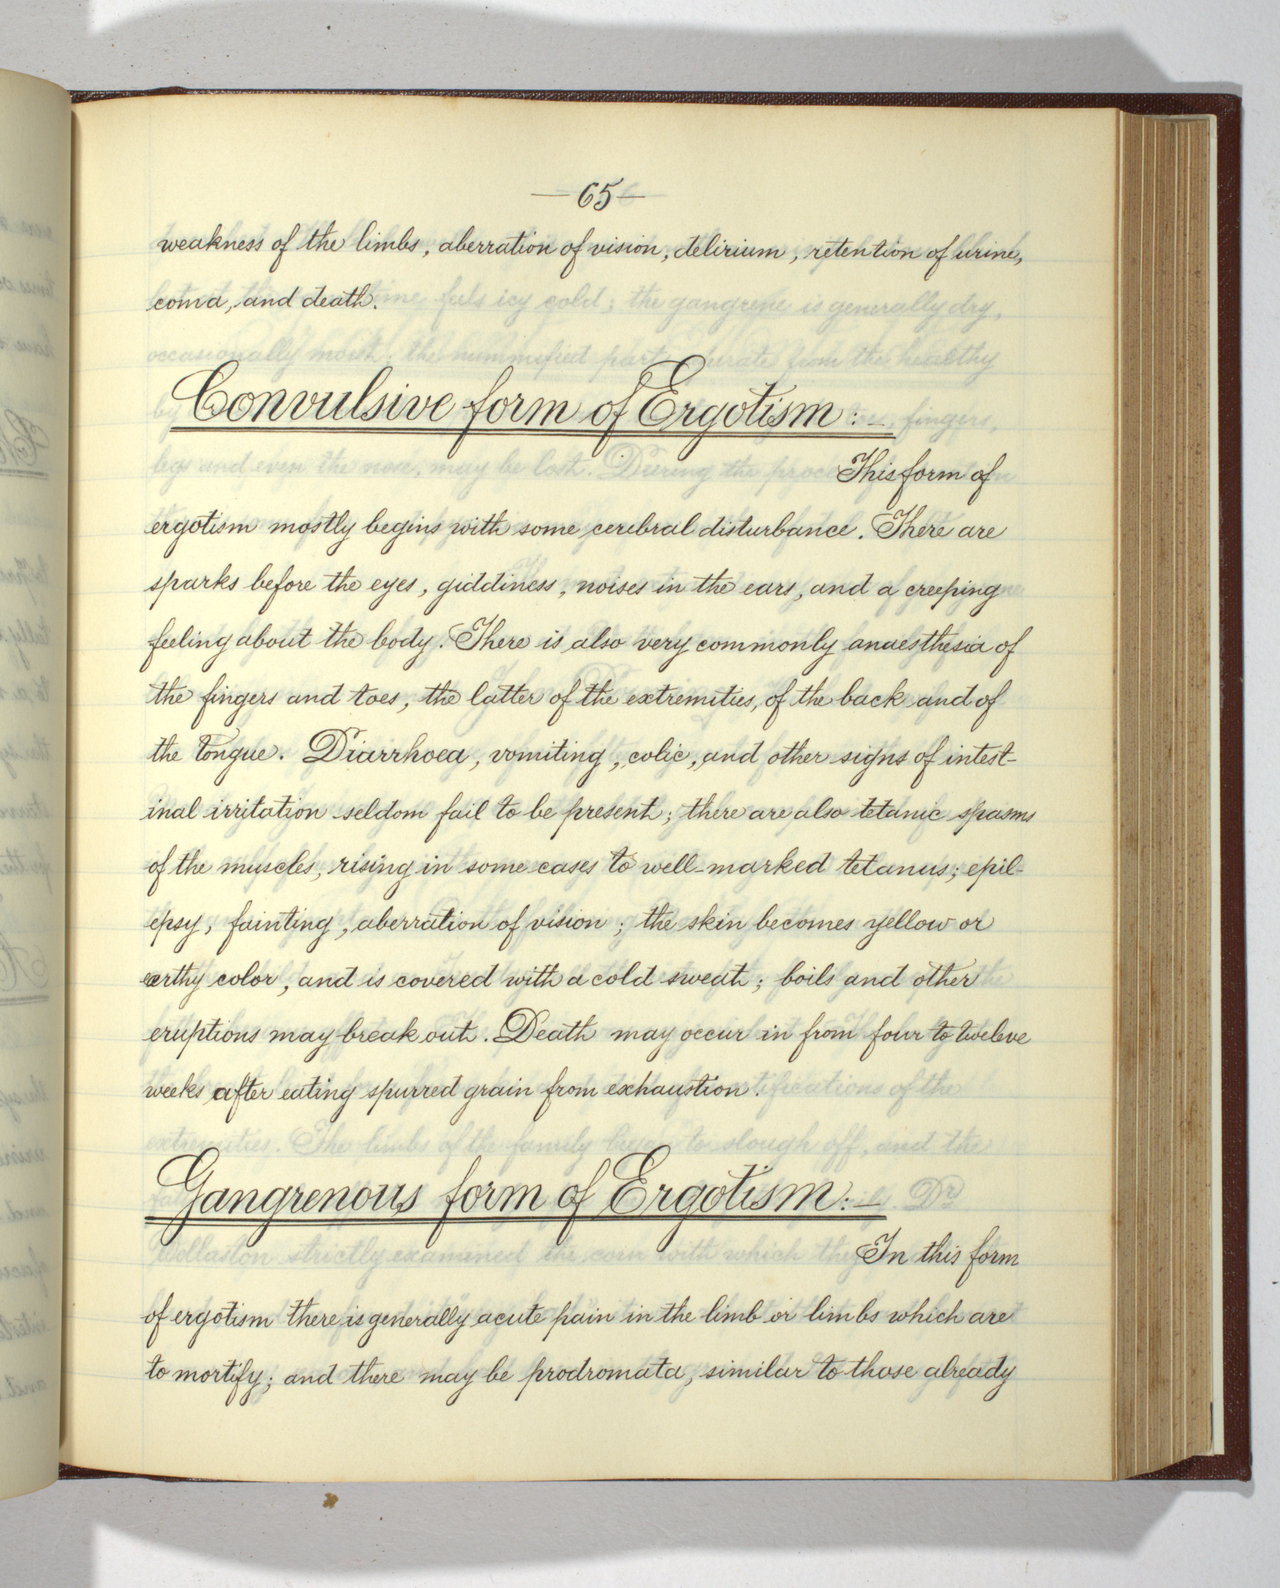 — 65 —
weakness of the limbs, aberration of vision, delirium, retention of urine,
coma, and death.
Convulsive form of Ergotism:—
This form of
ergotism mostly begins with some cerebral disturbance. There are
sparks before the eyes, giddiness, noises in the ears, and a creeping
feeling about the body. There is also very commonly anaesthesia of
the fingers and toes, the latter of the extremities, of the back and of
the tongue. Diarrhoea, vomiting, colic, and other signs of intest-
inal irritation seldom fail to be present; there are also tetanic spasms
of the muscles, rising in some cases to well-marked tetanus; epil-
epsy, fainting, aberration of vision; the skin becomes yellow or
erthy color, and is covered with a cold sweat; boils and other
eruptions may break out. Death may occur in from four to twelve
weeks after eating spurred grain from exhaustion.
Gangrenous form of Ergotism:—
In this form
of ergotism there is generally acute pain in the limb or limbs which are
to mortify; and there may be prodromata, similar to those already